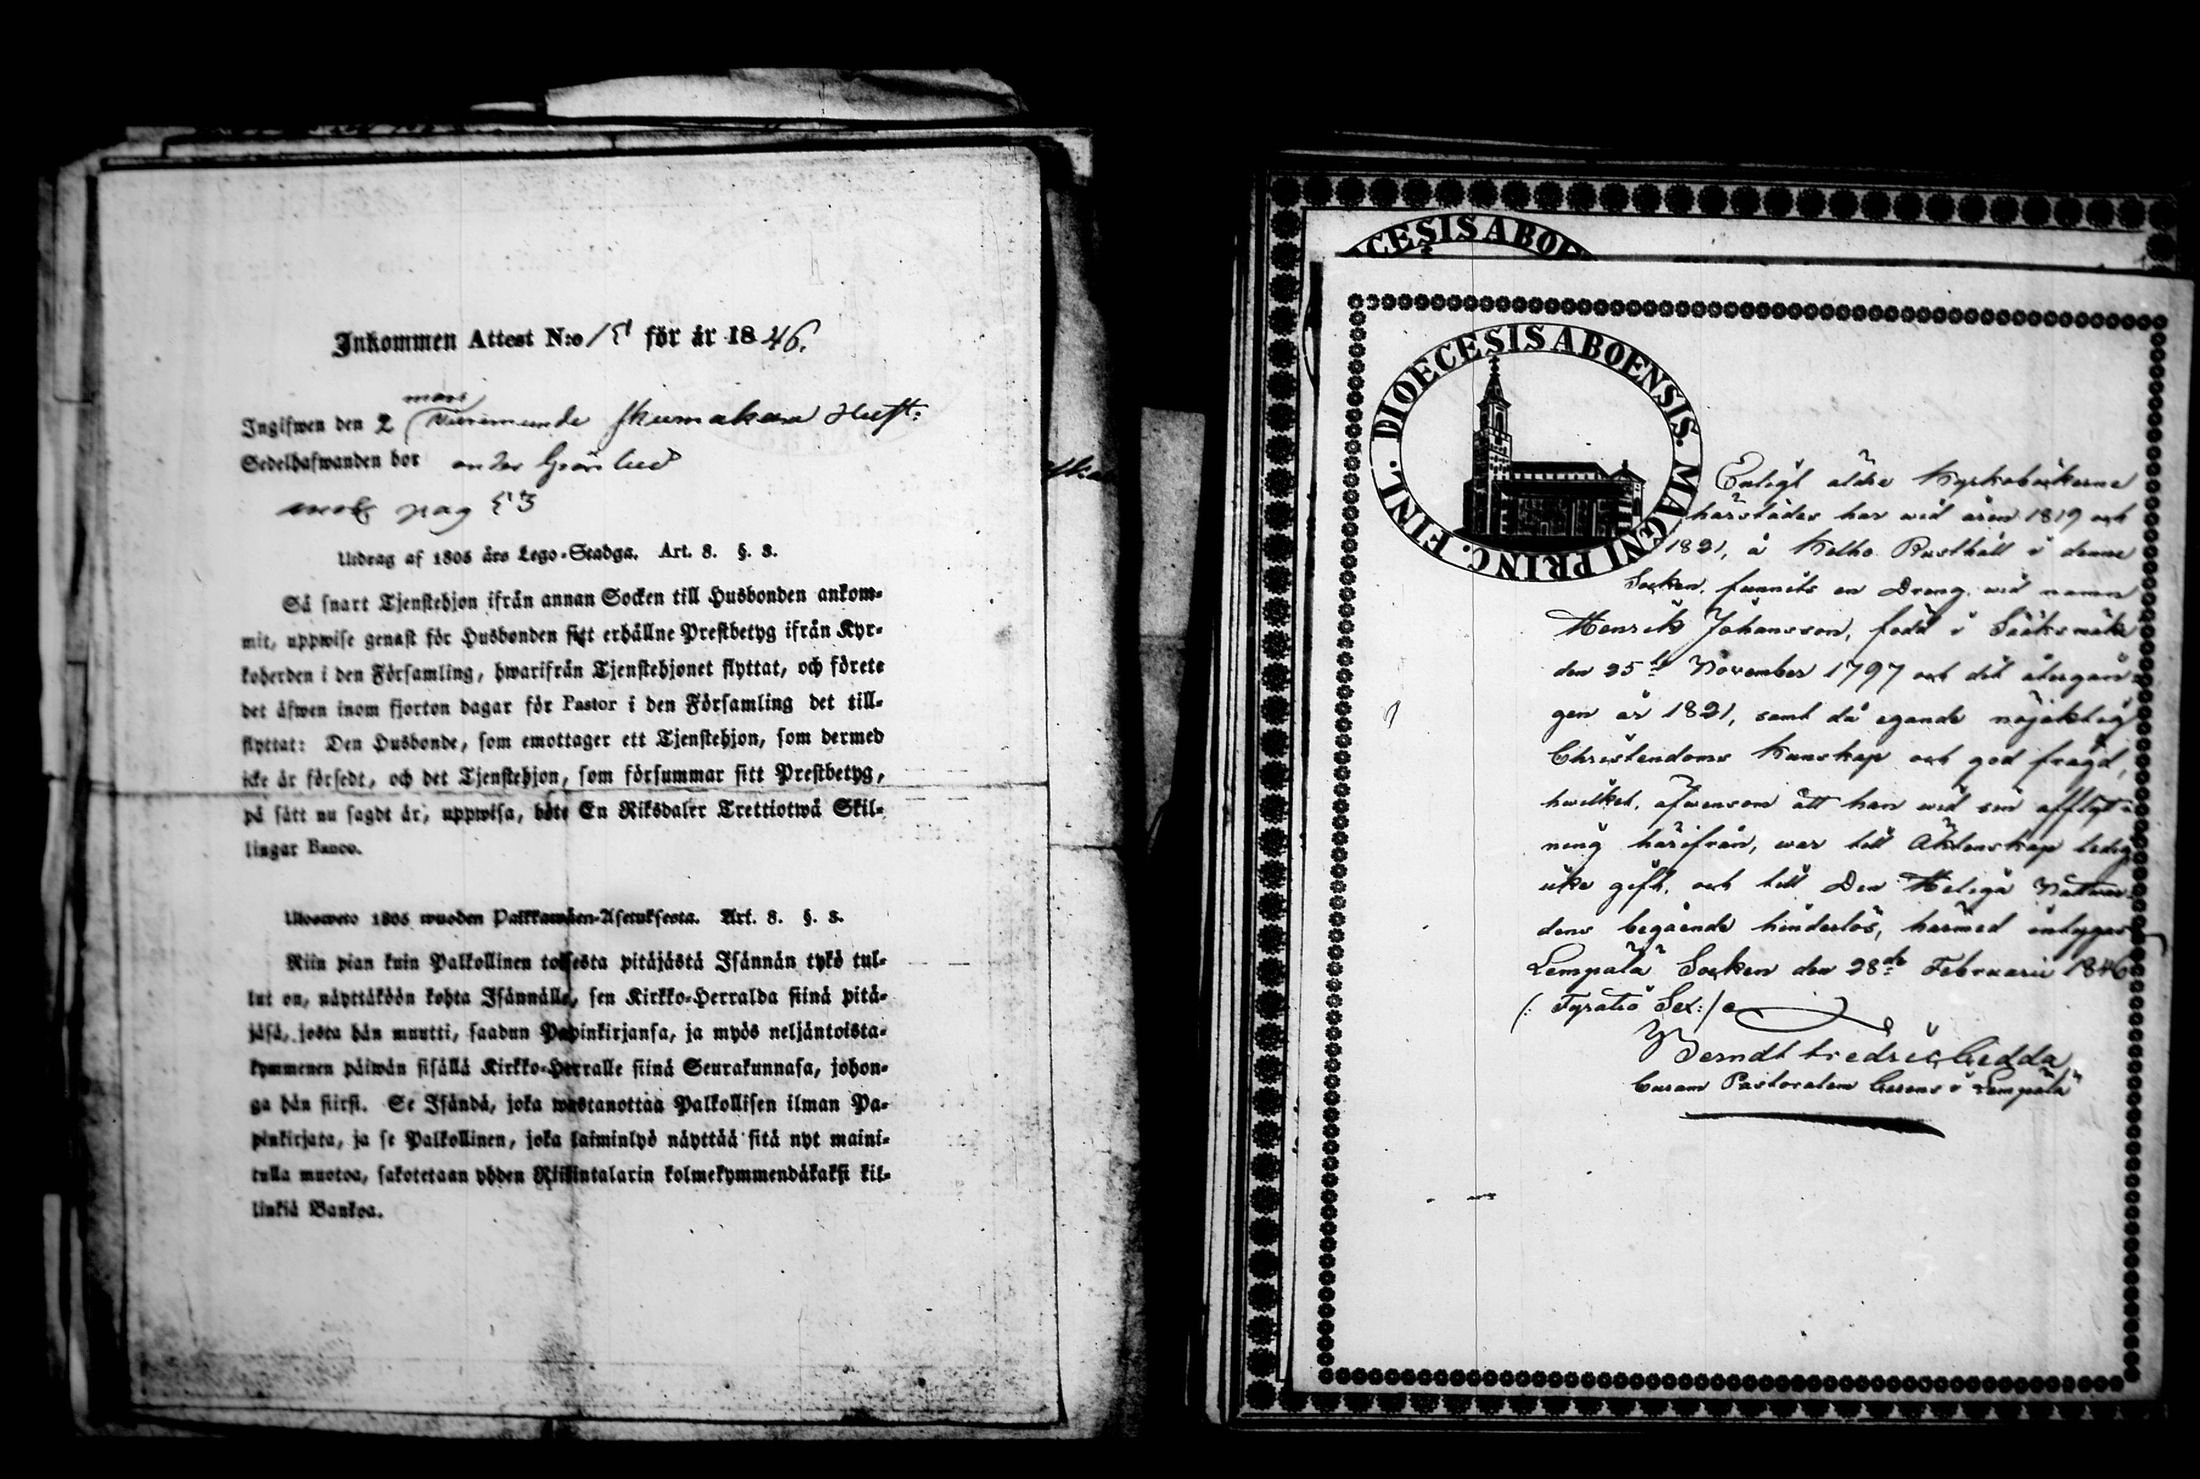 Inkommen Attest N:o 15 för år 1846.
Ingifwen den 2 mars
Sedelhafwanden bor under
pag 53
Utdrag af 1805 års Lego-Stadga. Art. 8. §. 8.
Så snart Tjenstehjon ifrån annan Socken till Husbonden ankom-
mit, uppwise genast för Husbonden sitt erhållne Prestbetyg ifrån Kyr-
koherden i den Församling, hwarifrån Tjenstehjonet flyttat, och förete
det äfwen inom fjorton dagar för Pastor i den Församling det till-
flyttat: Den Husbonde, som emottager ett Tjenstehjon, som dermed
icke är försedt, och det Tjenstehjon, som försummar sitt Prestbetyg,
på sätt nu sagdt är, uppwisa, böte En Riksdaler Trettiotwå Skil-
lingar Banco.
Ulosweto 1805 wuoden Palkkawäen-Asetuksesta. Art. 8. §. 8.
Niin pian kuin Palkollinen toisesta pitäjästä Isännän tykö tul-
lut on, näyttäköön kohta Isännälle, sen Kirkko-Herralda siinä pitä-
jäsä, josta hän muutti, saadun Papinkirjansa, ja myös neljäntoista-
kymmenen päiwän sisällä Kirkko-Herralle siinä Seurakunnasa, johon-
ga hän siirsi. Se Isändä, joka wastanottaa Palkollisen ilman Pa-
pinkirjata, ja se Palkollinen, joka laiminlyö näyttää sitä nyt maini-
tulla muotoa, sakotetaan yhden Riikintalarin kolmekymmendäkaksi kil-
linkiä Bankoa.
DIOECESIS ABOENSIS
DIOECESIS ABOENSIS. MAGNI PRINC. FINL.
Enligt äldre Kyrkoböckerne
härstädes har wid åren 1819 och
1821, å Kelho Rusthåll i denne
Socken, funnits en Dreng wid namn
Henrik Johansson, född i Sääksmäki
den 25te November 1797 och dit återgån-
gen år 1821, samt då egande nöjaktig
Christendoms Kunskap och god frägd,
hwilket, äfwensom att han wid sin afflyt-
ning härifrån, war till Äktenskap ledig
icke gift, och till Den Heliga Nattwar-
dens begående hinderlös, härmed intygas
Lempälä Socken den 28de Februarii 1846
(: Gratis Sex :)
Berndt Fredric Gedda
Curam Pastoralem Gerens i Lempälä